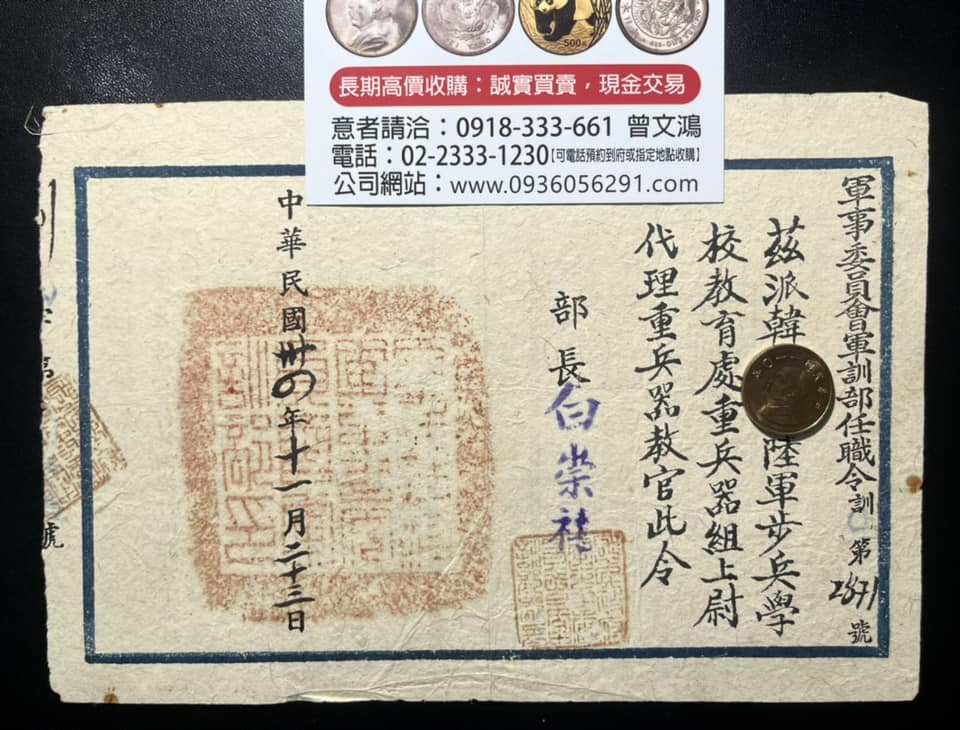 500元
長期高價收購：誠實買賣，現金交易
意者請洽：0918-333-661 曾文鴻
電話：02-2333-1230【可電話預約到府或指定地點收購】
公司網站：www.0936056291.com
軍事委員會軍訓部任職令 訓 第2871號
茲派韓 陸軍步兵學
校教育處重兵器組上尉
代理重兵器教官此令
部長白崇禧
中華民國卅四年十一月二十三日
第
號